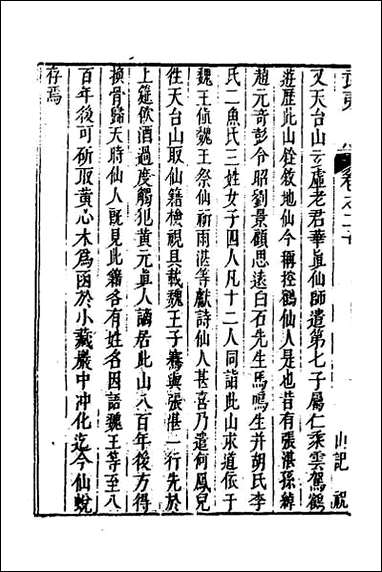 武夷
卷之二十
山記
祝
又天台山玄虛老君華真仙師遣第七子屬仁乘雲駕鶴
遊歷此山銓敘地仙今稱控鶴仙人是也昔有張湛孫綽
趙元奇彭令昭劉景顧思遠白石先生馬鳴生并胡氏李
氏二魚氏三姓女子四人凡十二人同詣此山求道依于
魏王值魏王祭仙祈雨湛等獻詩仙人甚喜乃遣何鳳兒
往天台山取仙籍檢視具載魏王子騫與張湛一行先於
上筵飲酒過度觸犯黃元真人謫居此山八百年後方得
換骨歸天時仙人既見此籍各有姓名因語魏王等至八
百年後可斫取黃心木為函於小藏巖中冲化迄今仙蛻
存焉